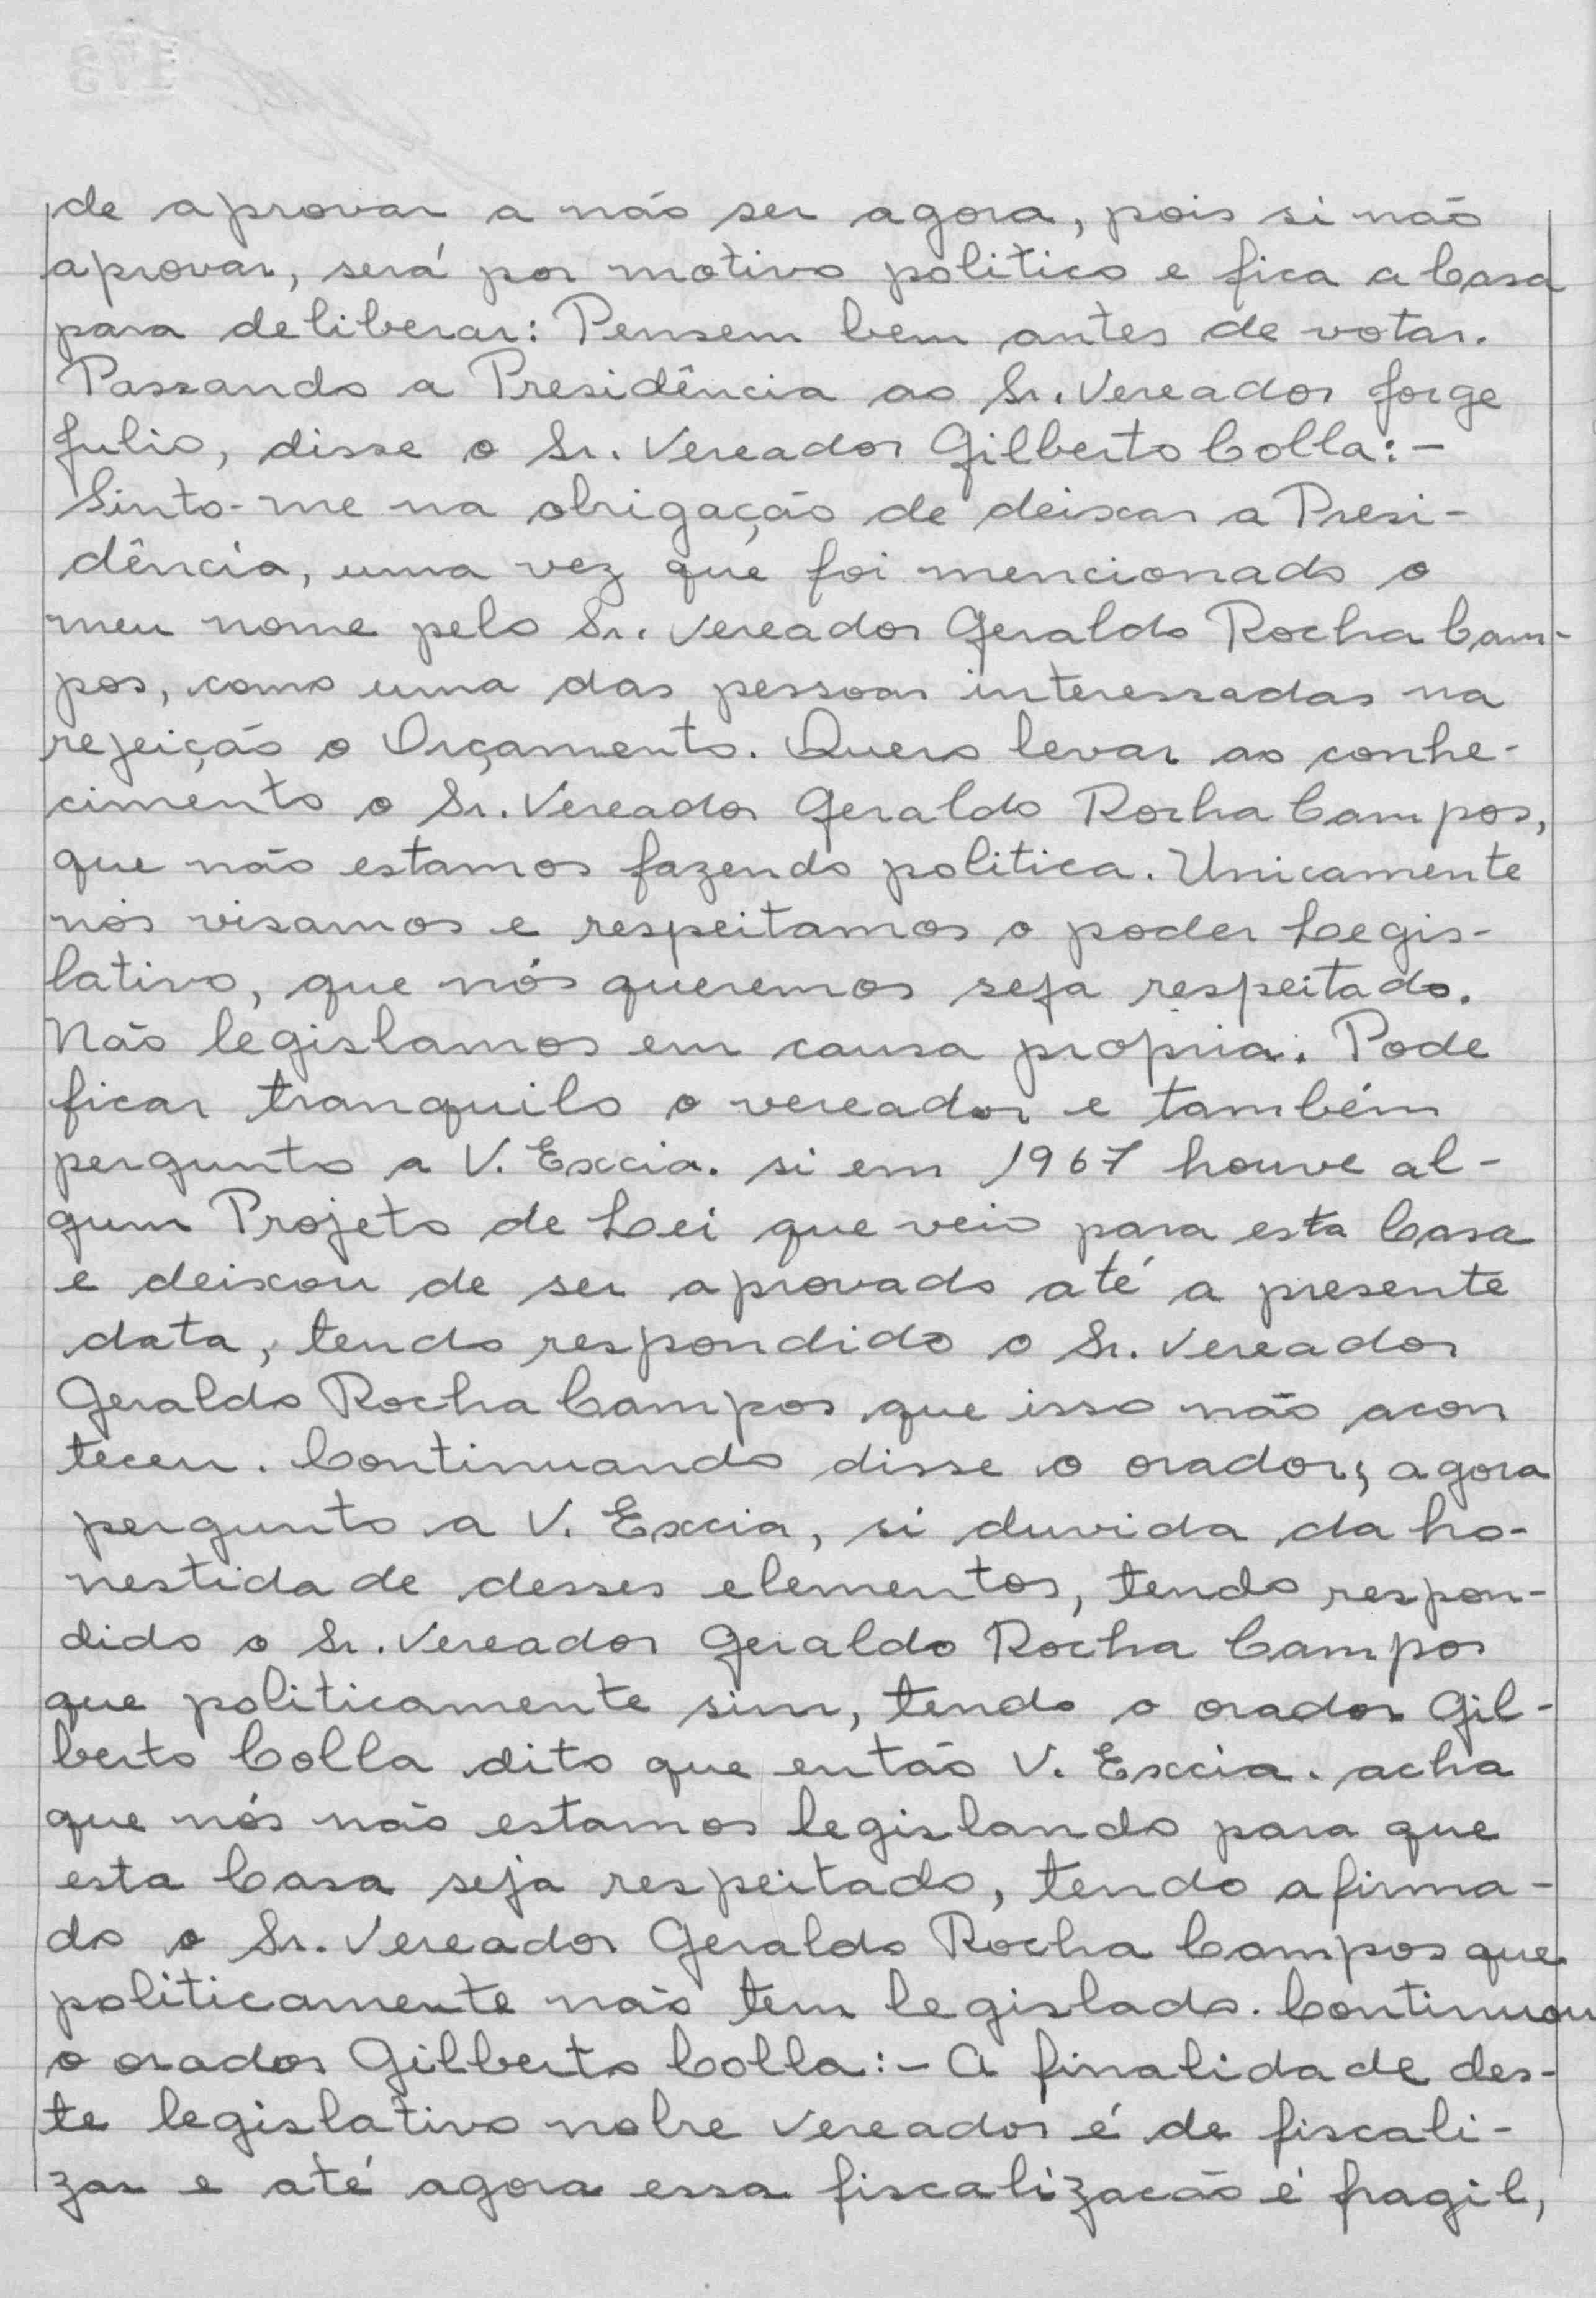 de aprovar a não ser agora, pois si não
aprovar, será por motivo politico e fica a Casa
para deliberar: Pensem bem antes de votar.
Passando a Presidência ao Sr. Vereador Jorge
Julio, disse o Sr. Vereador Gilberto Colla:-
Sinto-me na obrigação de deixar a Presi-
dência, uma vez que foi mencionado o
meu nome pelo Sr. Vereador Geraldo Rocha Cam-
pos, como uma das pessoas interessadas na
rejeição o Orçamento. Quero levar ao conhe-
cimento o Sr. Vereador Geraldo Rocha Campos,
que não estamos fazendo politica. Unicamente
nós visamos e respeitamos o poder Legis-
lativo, que nós queremos seja respeitado.
Não legislamos em causa propria. Pode
ficar tranquilo o vereador e também
pergunto a V. Excia. si em 1967 houve al-
gum Projeto de Lei que veio para esta Casa
e deixou de ser aprovado até a presente
data, tendo respondido o Sr. Vereador
Geraldo Rocha Campos que isso não acon
teceu. Continuando disse o orador, agora
pergunto a V. Excia, si duvida da ho-
nestidade desses elementos, tendo respon-
dido o Sr. Vereador Geraldo Rocha Campos
que politicamente sim, tendo o orador Gil-
berto Colla dito que então V. Excia. acha
que nós não estamos legislando para que
esta Casa seja respeitado, tendo afirma-
do o Sr. Vereador Geraldo Rocha Campos que
politicamente não tem legislado. Continuou
o orador Gilberto Colla:- A finalidade des-
te legislativo nobre vereador é de fiscali-
zar e até agora essa fiscalizacão é fragil,